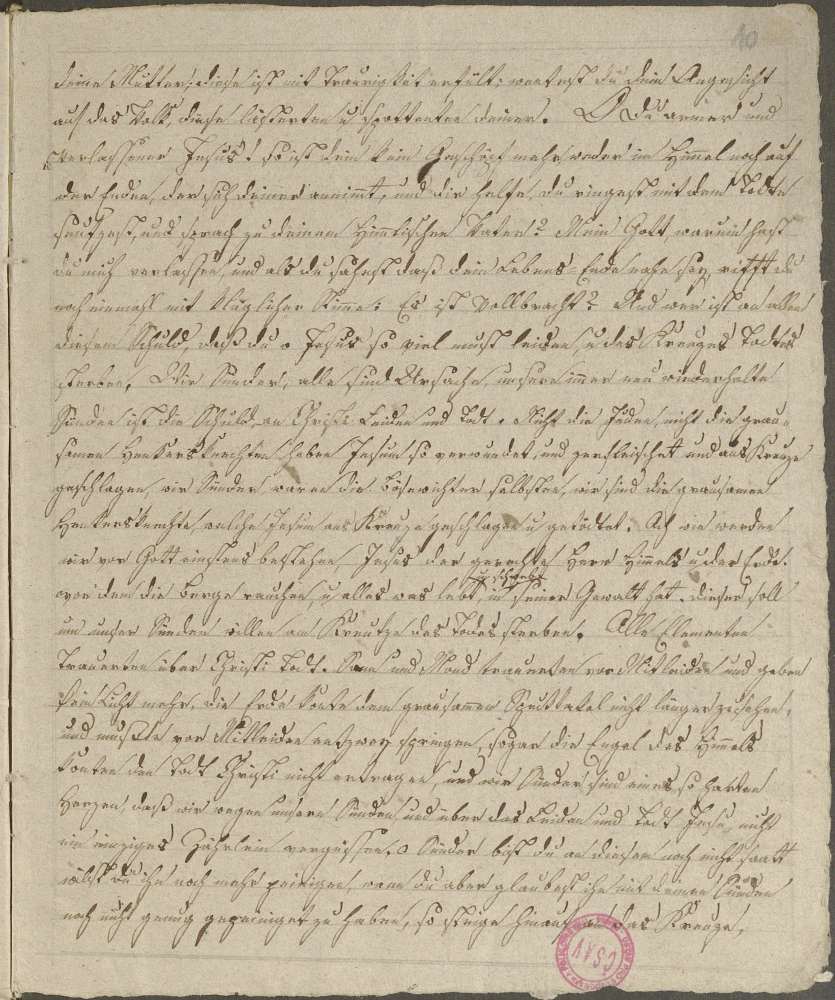 10
deine Mutter, diese ist mit Traurigkeit erfült, wendest du dein Angesicht
auf das Volk, diese lästerten u spotteten deiner. O du armer und
verlassener Jesus! so ist dein kein Geschöpf mehr weder im Himmel noch auf
der Erden, der sich deiner annimmt, und dir helfe, du ringest mit dem Todte
seufzest, und sprach zu deinem Himlischen Vater? Mein Gott, warum hast
du mich verlassen, und als du sahest daß dein Lebens-Ende nahe sey, rifft du
noch einmahl mit kläglicher Stimme: Es ist vollbracht? Und wer ist an allen
diesem Schuld, daß du o Jesus so viel must leiden, u des Kreuzes Todtes
sterben, Wir Sünder, alle sind Ursache, unsere immer neu wiederholte
Sünden ist die Schuld an Christi Leiden und Todt. Nicht die Juden, nicht die grau-
samen Henkersknechten haben Jesum so verwundet, und zerfleischet und ans Kreuze
geschlagen, wir Sünder waren die bösewichter selbsten, wir sind die grausamen
Henkersknechte, welche Jesum ans Kreuze geschlagen u getödtet. Ach wie werden
wir vor Gott einstens bestehen, Jesus der gerechte Herr Himmels u der Erde.
vor dem die berge rauchen, u alles was lebt, u schwebt in seiner Gewalt hat. dieser soll
um unser Sünden willen am Kreutze des Todes sterben. Alle Elementen
Trauerten über Christi Todt. Sonn und Mond trauerten vor Mitleiden und geben
kein Licht mehr, die Erde konte dem grausamen Specttakel nicht länger zusehen,
und muste vor Mitleiden entzwey springen, sogar die Engel des Himmels
konten den Todt Christi nicht ertragen, und wir Sünder sind eines so harten
Herzen, daß wir wegen unsern Sünden und über das Leiden und Todt Jesu, nicht
ein einziges Zährlein vergissen. o Sünder bist du an diesem noch nicht satt
willst du ihn noch mehr peinigen, wenn du aber glaubest ihn mit deinen Sünden
noch nicht genug gepeiniget zu haben, so steige hinauf an das Kreuze,
ČSAV